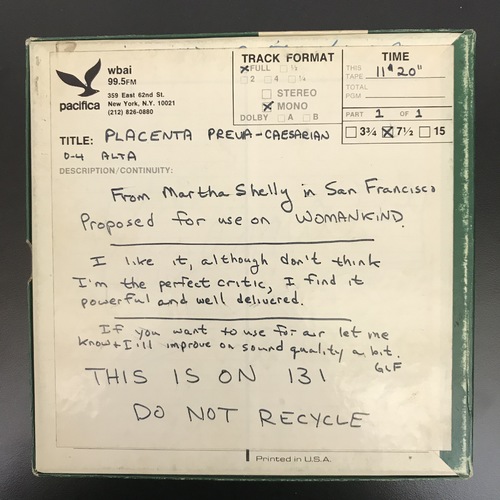 wbai
99.5FM
pacifica
359 East 62nd St.
New York, N.Y. 10021
(212) 826-0880
TRACK FORMAT
FULL ½
2 4 ¼
STEREO
MONO
DOLBY A B
TIME
THIS TAPE 11' 20"
TOTAL PGM
PART 1 OF 1
3¾ 7½ 15
TITLE: PLACENTA PREVA-CAESARIAN
ALTA
DESCRIPTION/CONTINUITY:
From Martha Shelly in San Francisco
Proposed for use on WOMANKIND.
I like it, although don't think
I'm the perfect critic, I find it
powerful and well delivered.
If you want to use for air let me
know + I'll improve on sound quality a bit.
GLF
THIS IS ON 131
DO NOT RECYCLE
Printed in U.S.A.